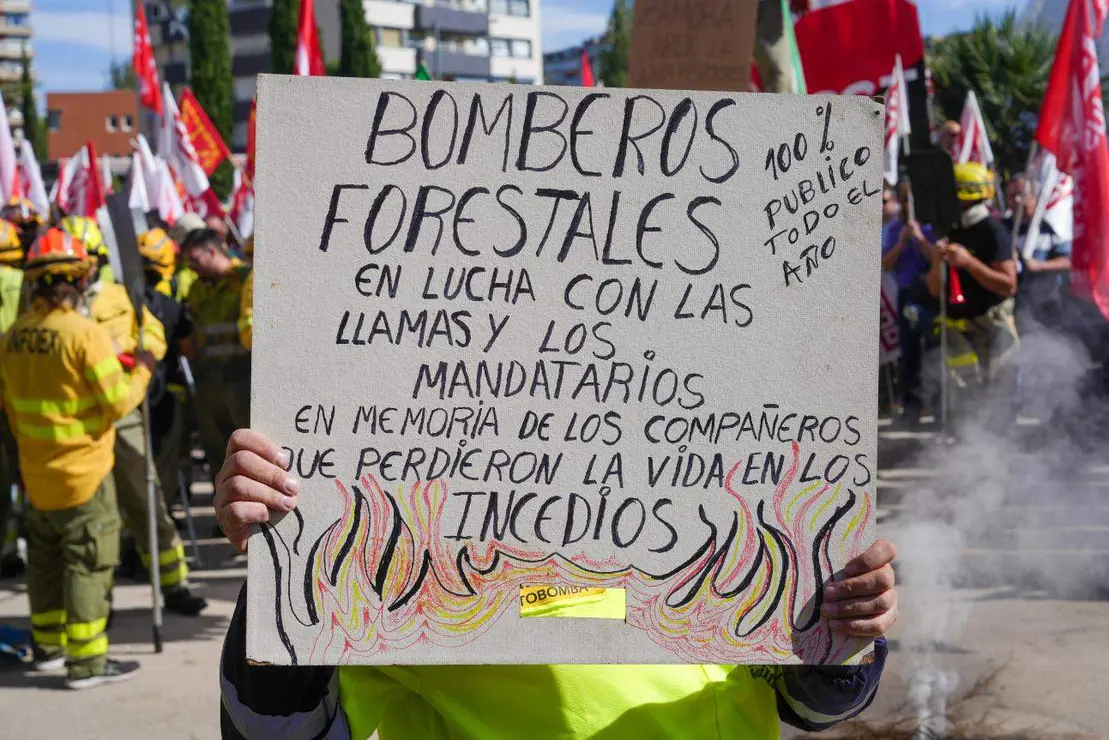 BOMBEROS
FORESTALES
100%
PUBLICO
TODO EL
AÑO
EN LUCHA CON LAS
LLAMAS Y LOS
MANDATARIOS
EN MEMORIA DE LOS COMPAÑEROS
QUE PERDIERON LA VIDA EN LOS
INCEDIOS
TOBOMBA
INFOEX